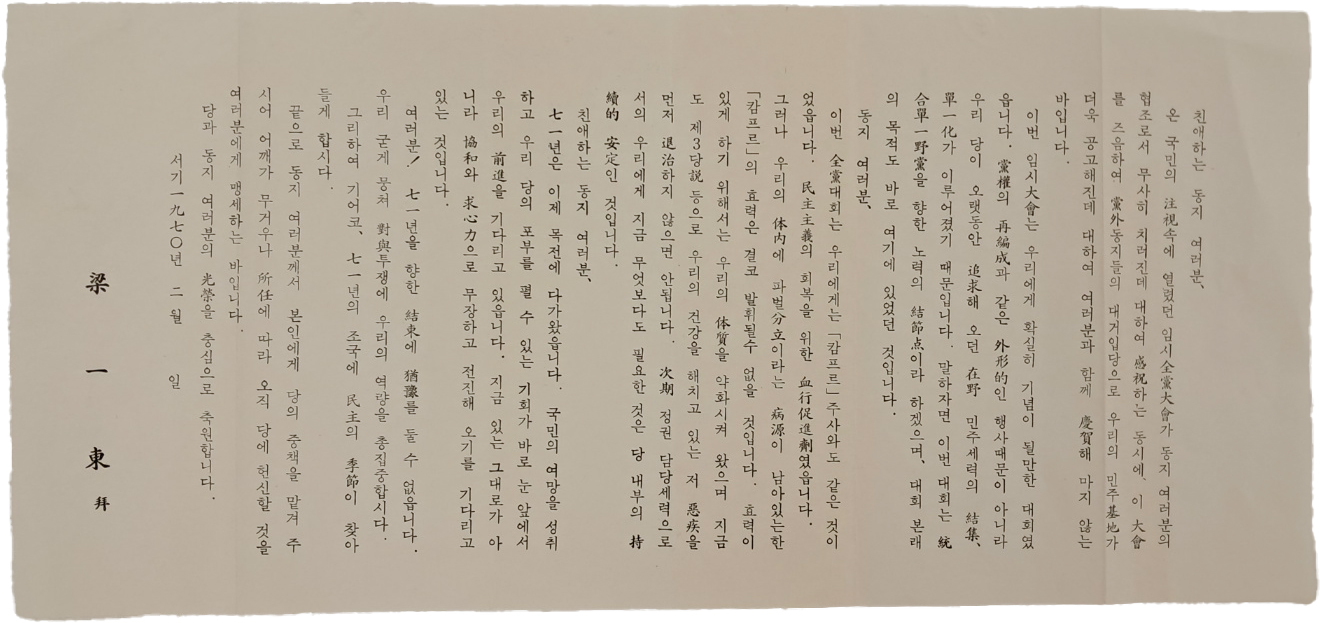 친애하는 동지 여러분、
온 국민의 注視속에 열렸던 임시全黨大會가 동지 여러분의
협조로서 무사히 치러진데 대하여 感祝하는 동시에、이 大會
를 즈음하여 黨外동지들의 대거입당으로 우리의 민주基地가
더욱 공고해진데 대하여 여러분과 함께 慶賀해 마지 않는
바입니다.
이번 임시大會는 우리에게 확실히 기념이 될만한 대회였
읍니다. 黨權의 再編成과 같은 外形的인 행사때문이 아니라
우리 당이 오랫동안 追求해 오던 在野 민주세력의 結集、
單一化가 이루어졌기 때문입니다. 말하자면 이번 대회는 統
合單一野黨을 향한 노력의 結節点이라 하겠으며、대회 본래
의 목적도 바로 여기에 있었던 것입니다.
동지 여러분、
이번 全黨대회는 우리에게는「캄프르」주사와도 같은 것이
었읍니다. 民主主義의 회복을 위한 血行促進劑였읍니다.
그러나 우리의 体內에 파벌分立이라는 病源이 남아있는한
「캄프르」의 효력은 결코 발휘될수 없을 것입니다. 효력이
있게 하기 위해서는 우리의 体質을 약화시켜 왔으며 지금
도 제3당説 등으로 우리의 건강을 해치고 있는 저 惡疾을
먼저 退治하지 않으면 안됩니다. 次期 정권 담당세력으로
서의 우리에게 지금 무엇보다도 필요한 것은 당 내부의 持
續的 安定인 것입니다.
친애하는 동지 여러분、
七一년은 이제 목전에 다가왔읍니다. 국민의 여망을 성취
하고 우리 당의 포부를 펼 수 있는 기회가 바로 눈 앞에서
우리의 前進을 기다리고 있읍니다. 지금 있는 그대로가 아
니라 協和와 求心力으로 무장하고 전진해 오기를 기다리고
있는 것입니다.
여러분! 七一년을 향한 結束에 猶豫를 둘 수 없읍니다.
우리 굳게 뭉쳐 對與투쟁에 우리의 역량을 총집중합시다.
그리하여 기어코、七一년의 조국에 民主의 季節이 찾아
들게 합시다.
끝으로 동지 여러분께서 본인에게 당의 중책을 맡겨 주
시어 어깨가 무거우나 所任에 따라 오직 당에 헌신할 것을
여러분에게 맹세하는 바입니다.
당과 동지 여러분의 光榮을 충심으로 축원합니다.
서기一九七○년 二월 일
梁一東 拜